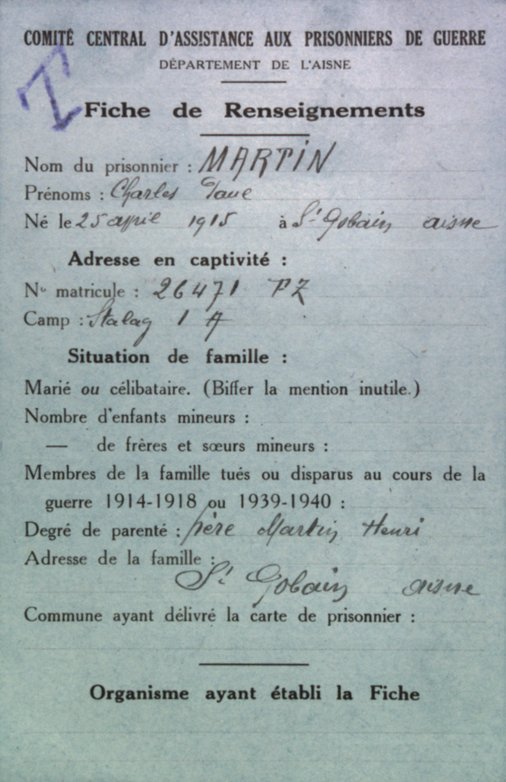 COMITÉ CENTRAL D'ASSISTANCE AUX PRISONNIERS DE GUERRE
DÉPARTEMENT DE L'AISNE
T
Fiche de Renseignements
Nom du prisonnier : MARTIN
Prénoms : Charles
Né le 25 april 1915 à St Gobain aisne
Adresse en captivité :
No matricule : 26471 PZ
Camp : Stalag 1 A
Situation de famille :
Marié ou célibataire. (Biffer la mention inutile.)
Nombre d'enfants mineurs :
— de frères et sœurs mineurs :
Membres de la famille tués ou disparus au cours de la
guerre 1914-1918 ou 1939-1940 :
Degré de parenté : père Martin Henri
Adresse de la famille :
St Gobain aisne
Commune ayant délivré la carte de prisonnier :
Organisme ayant établi la Fiche